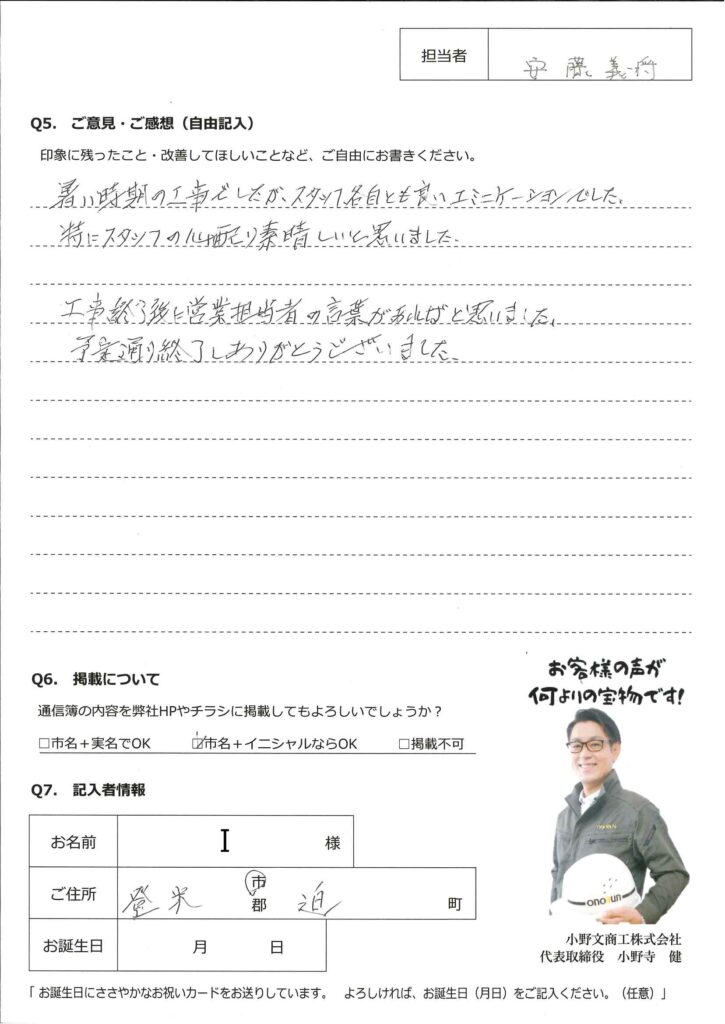 担当者 安藤義将
Q5. ご意見・ご感想（自由記入）
印象に残ったこと・改善してほしいことなど、ご自由にお書きください。
暑い時期の工事でしたが、スタッフ各自とも良いコミニケーションでした。
特にスタッフの心配り素晴しいと思いました。
工事終了後に営業担当者の言葉があればと思いました。
予定通り終了しありがとうございました。
Q6. 掲載について
通信簿の内容を弊社HPやチラシに掲載してもよろしいでしょうか？
□市名＋実名でOK ☑市名＋イニシャルならOK □掲載不可
Q7. 記入者情報
お名前 I 様
ご住所 登米 市 郡 迫 町
お誕生日 月 日
「お誕生日にささやかなお祝いカードをお送りしています。 よろしければ、お誕生日（月日）をご記入ください。（任意）」
お客様の声が
何よりの宝物です!
onobun
小野文商工株式会社
代表取締役 小野寺 健